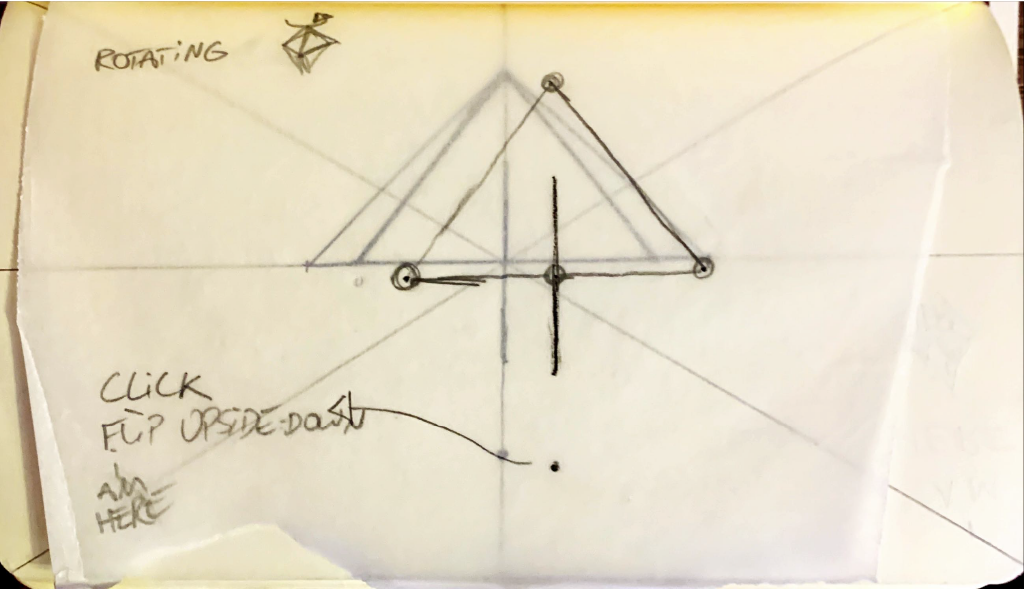 ROTATiNG
CLiCK
FLiP UPSiDE-DOWN
AiM
HERE